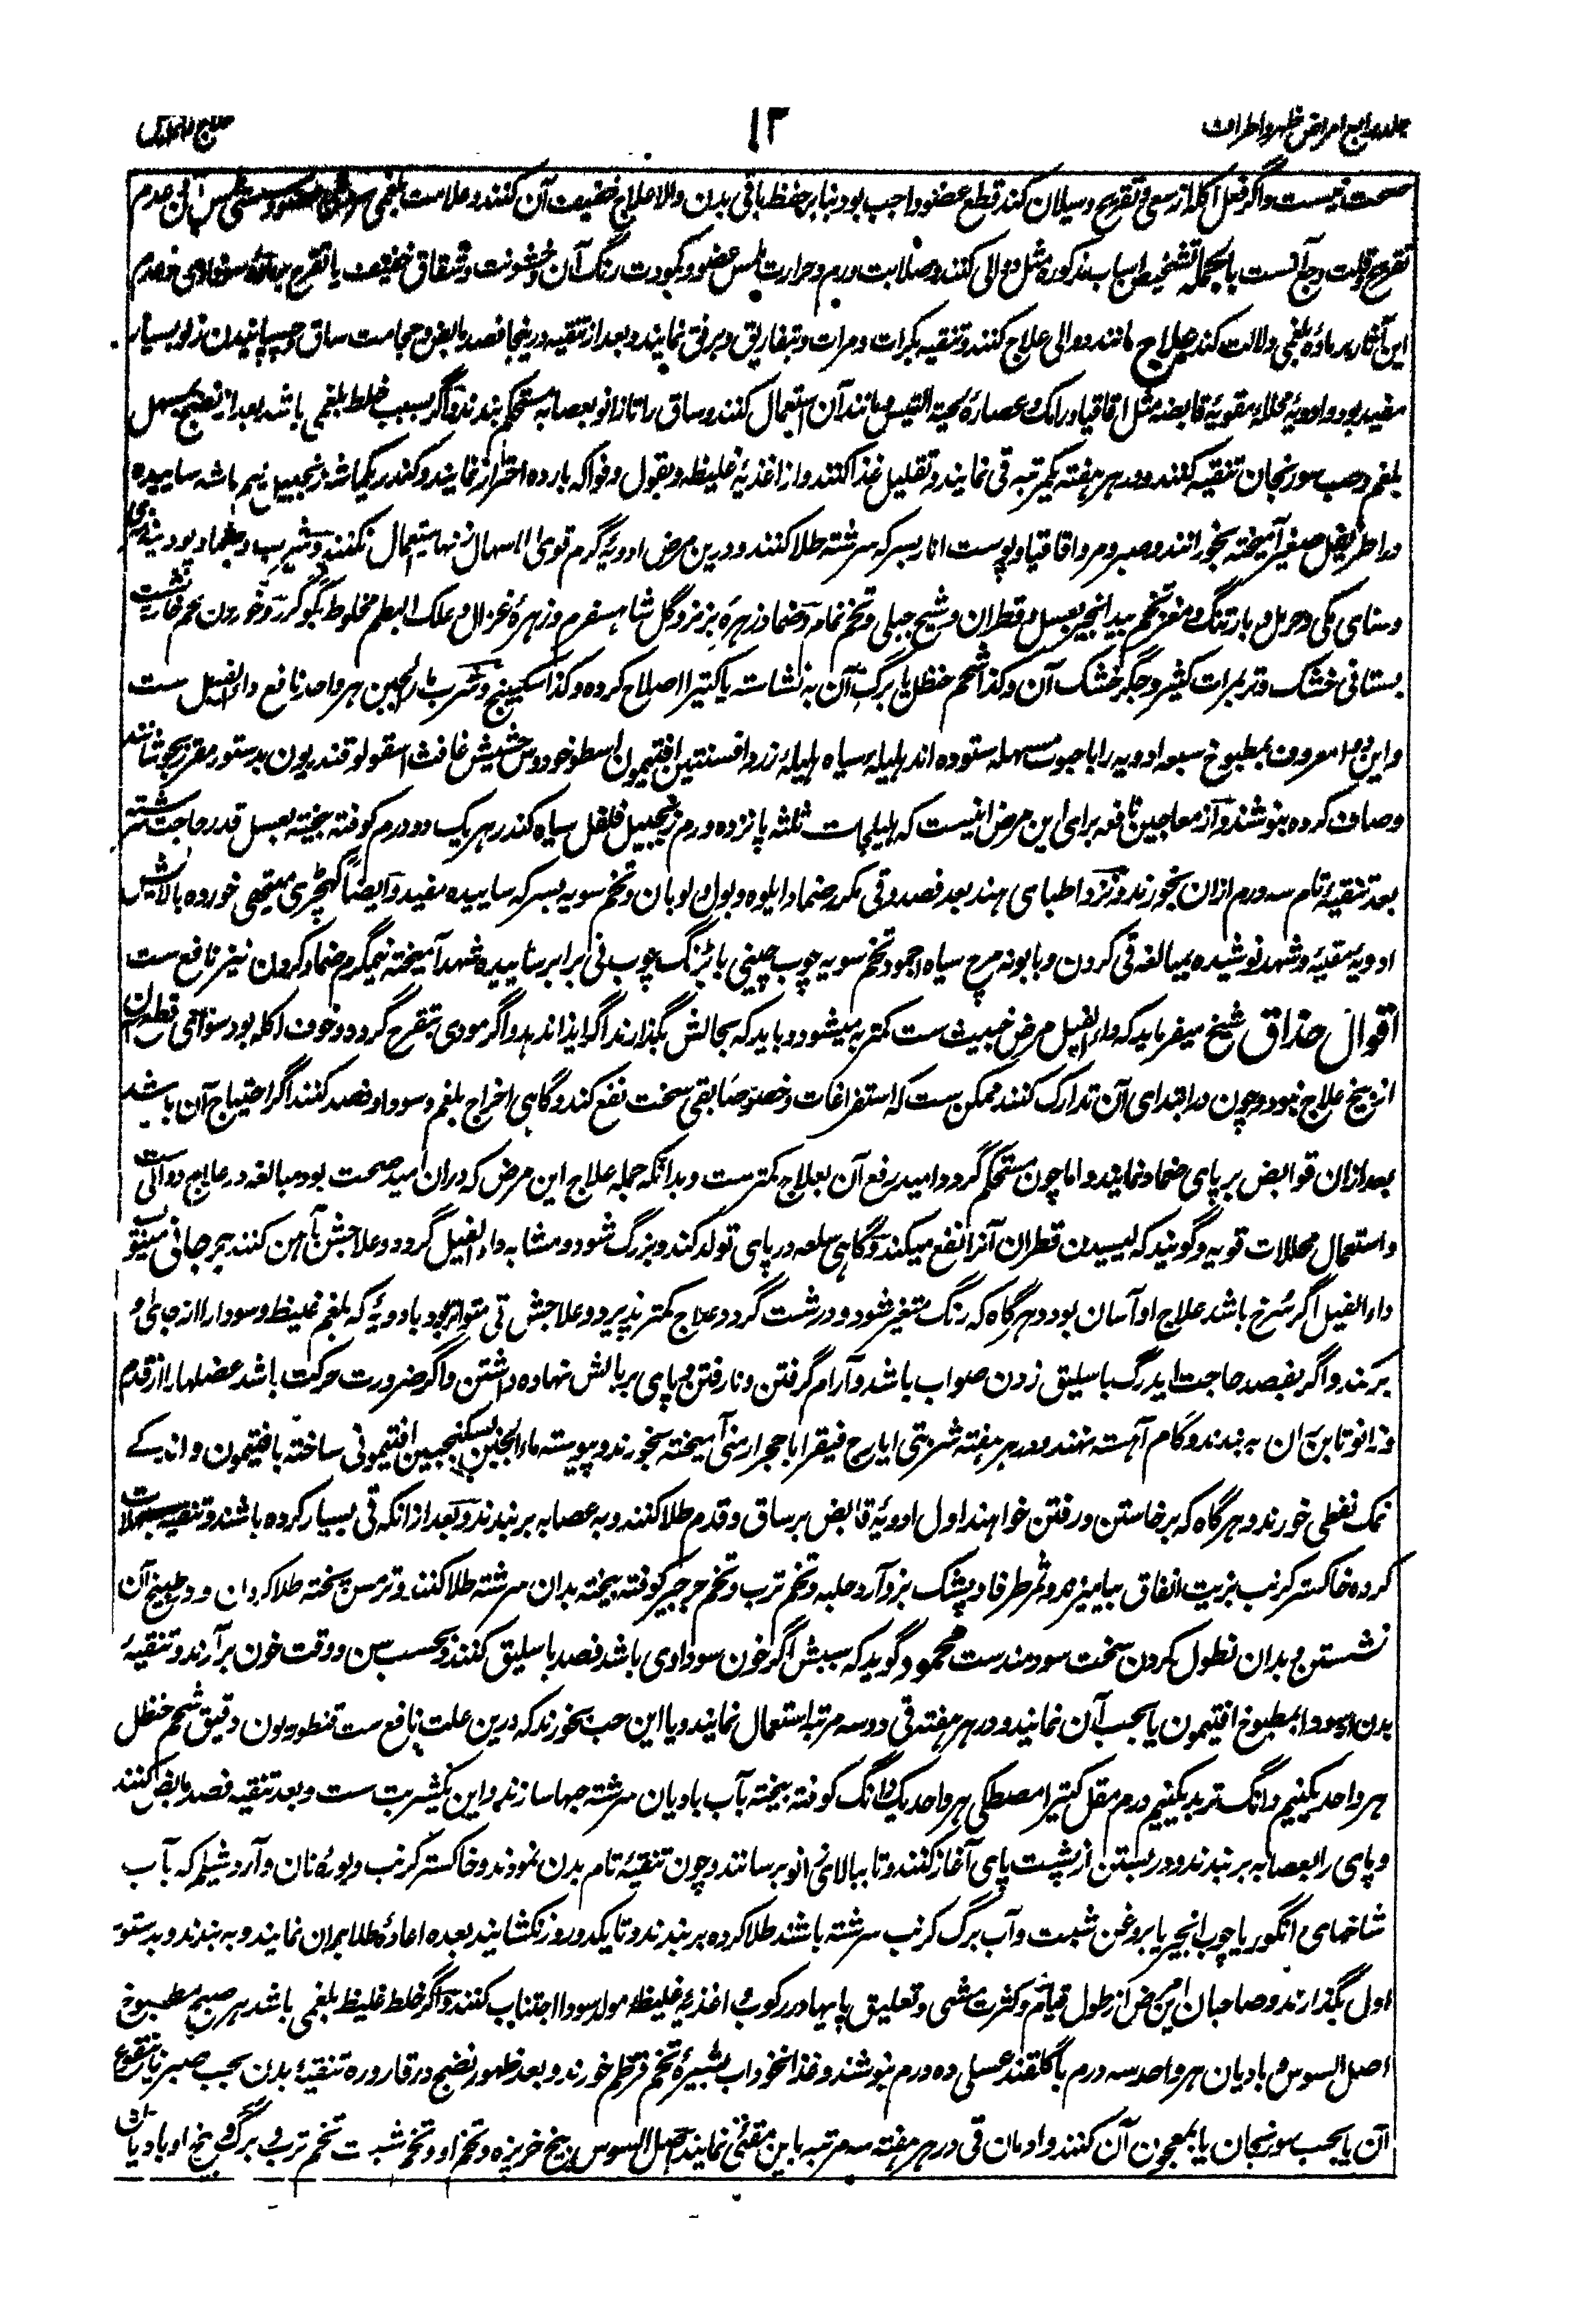 جلد رابع امراض ظهر و اطراف
۱۳
علاج داء الفیل
صحت نیست و اگر فعل آکله از سعی و تقریح و سیلان کند قطع عضو واجب بود بنابر حفظ باقی بدن والا علاج خفیف آن کنند و علامت بلغمی
تقریح و قلت وجع آنست بالجمله تشخیص اسباب مذکوره مثل دوالی کنند و صلابت ورم و حرارت ملمس عضو و کبودت رنگ آن و خشونت و شقاق خفیف یا تقرح بر ماده سوداوی و عدم
این آثار بر ماده بلغمی دلالت کند علاج مانند دوالی علاج کنند و تنقیه بکرات و مرات و بتفاریق و برفق نمایند و بعد از تنقیه درینجا فصد مابض و حجامت ساق و چسپانیدن زلو بسیار
مفید بود و ادویه محلله مقویه قابضه مثل اقاقیا و رامک و عصاره لحیة التیس و مانند آن استعمال کنند و ساق را تا زانو بعصابه مستحکم بندند و اگر بسبب خلط بلغمی باشد بعد از نضج بمسهل
بلغم و حب سورنجان تنقیه کنند و در هر هفته یکمرتبه قی نمایند و تقلیل غذا کنند و از اغذیه غلیظه و بقول و فواکه بارده احتراز نمایند و کندر یکماشه زنجبیل نیم ماشه ساییده
در اطریفل صغیر آمیخته بخورانند و صبر و مر و اقاقیا و پوست انار بسرکه سرشته طلا کنند و درین مرض ادویه گرم قوی الاسهال زنها استعمال نکنند و شرب و ضماد پودینه
و سنای مکی و حرمل و بارتنگ و مغز تخم بیدانجیر بعسل و قطران و شیح جبلی و تخم نمام و ضماد زهره بز نر و گل شاهسفرم و زهره غزال و علک البطم مخلوط بگوگرد و خوردن لحم خارپشت
بستانی خشک و تر بمرات کثیر و جگر خشک آن و کذا شحم حنظل یا برگ آن به نشاسته یا کتیرا اصلاح کرده و کذا سکبینج و شرب ماء الجبن هر واحد نافع داء الفیل ست
و این دوا معروف بمطبوخ سبعه ادویه را با حبوب مسهله ستوده اند هلیله سیاه هلیله زرد افسنتین افتیمون اسطوخودوس حشیش غافث اسقولوقندریون بدستور مقرر بجوشانند
و صاف کرده بنوشند و از معاجین نافعه برای این مرض اینست که هلیلجات ثلثه پانزده درم زنجبیل فلفل سیاه کندر هر یک دو درم کوفته بیخته بعسل قدر حاجت سرشته
بعد تنقیه تام سه درم ازان بخورند و نزد اطبای هند بعد فصد و قی مکرر ضماد ایلوه و بول و لوبان و تخم سویه بسرکه ساییده مفید و ایضاً کهچڑی میتهی خورده بالایش
ادویه مقیه و شهد نوشیده بمبالغه قی کردن و بابونه مرچ سیاه اجمود تخم سویه چوب چینی بابڑنگ چوب نی برابر ساییده شهد آمیخته نیمگرم ضماد کردن نیز نافع ست
اقوال حذاق شیخ میفرماید که داء الفیل مرض خبیث ست کمتر به میشود و باید که بحالش بگذارند اگر ایذا ندهد و اگر مودی بتقرح گردد و خوف آکله بود سوای قطع آن
از بیخ علاج نبود و چون در ابتدای آن تدارک کنند ممکن ست که استفراغات و خصوصاً بقی سخت نفع کند و گاهی اخراج بلغم و سودا و فصد کنند اگر احتیاج آن باشد
بعد ازان قوابض بر پای ضماد نمایند و اما چون مستحکم گردد امید رفع آن بعلاج کمترست و بدانکه جمله علاج این مرض که دران امید صحت بود مبالغه در علاج دوالی ست
و استعمال محللات قویه و گویند که لیسیدن قطران آنرا نفع میکند و گاهی سلعه در پای تولد کند و بزرگ شود و مشابه داء الفیل گردد و علاجش بآهن کنند جرجانی
داء الفیل اگر سرخ باشد علاج او آسان بود و هر گاه که رنگ متغیر شود و درشت گردد علاج کمتر پذیرد و علاجش قی متواتر بود بادویه که بلغم غلیظ و سودا را از جای
برکند و اگر بفصد حاجت آید رگ باسلیق زدن صواب باشد و آرام گرفتن و نارفتن و پای بر بالش نهاده داشتن و اگر ضرورت حرکت باشد عضلها را از قدم
و زانو تا بن ران به بندند و گام آهسته نهند و در هر هفته شربتی ایارج فیقرا با حجر ارمنی آمیخته بخورند و پیوسته ماء الجبن بسکنجبین افتیمونی ساخته با افتیمون و اندکے
نمک نفطی خورند و هر گاه که برخاستن و رفتن خواهند اول ادویه قابض بر ساق و قدم طلا کنند و به عصابه بر بندند و بعد از انکه قی بسیار کرده باشند و تنقیه بمسهلات
کرده خاکستر کرنب بزیت انفاق بیامیزند و ثمر طرفا و پشک بز و آرد حلبه و تخم ترب و تخم جرجیر کوفته بیخته بدان سرشته طلا کنند و ترمس پخته طلا کردن و در طبیخ آن
نشستن و بدان نطول کردن سخت سودمندست محمود گوید که سببش اگر خون سوداوی باشد فصد باسلیق کنند و بحسب سن و وقت خون برآرند و تنقیه
بدن از سودا بمطبوخ افتیمون یا بحب آن نمایند و در هر هفته قی دو سه مرتبه استعمال نمایند و یا این حب بخورند که درین علت نافع ست قنطوریون دقیق شحم حنظل
هر واحد یکنیم دانگ تربد یکنیم درم مقل کتیرا مصطکی هر واحد یک دانگ کوفته بیخته بآب بادیان سرشته حبها سازند و این یکشربت ست و بعد تنقیه فصد مابض کنند
و پای را بعصابه بر بندند و در بستن از پشت پای آغاز کنند و تا ببالای زانو برسانند و چون تنقیه تام بدن نمودند و خاکستر کرنب و بوره نان و آرد شیلم که بآب
شاخهای انگور یا چوب انجیر یا بروغن شبت و آب برگ کرنب سرشته باشند طلا کرده بر بندند و تا یکدو روز نکشایند بعده اعاده طلا بران نمایند و به بندند و بدستور
اول بگذارند و صاحبان این مرض از طول قیام و کثرت مشی و تعلیق پایها در رکوب و اغذیه غلیظه مولد سودا اجتناب کنند و اگر خلط غلیظ بلغمی باشد هر صبح مطبوخ
اصل السوس و بادیان هر واحد سه درم با گلقند عسلی ده درم بنوشند و غذا نخوداب بشیره تخم قرطم خورند و بعد ظهور نضج در قاروره تنقیه بدن بحب صبر یا بنقوع
آن یا بحب سورنجان یا بمعجون آن کنند و ادمان قی در هر هفته سه مرتبه باین مقئی نمایند اصل السوس بیخ خربزه و تخم او و تخم شبت تخم ترب و برگ و بیخ او بادیان